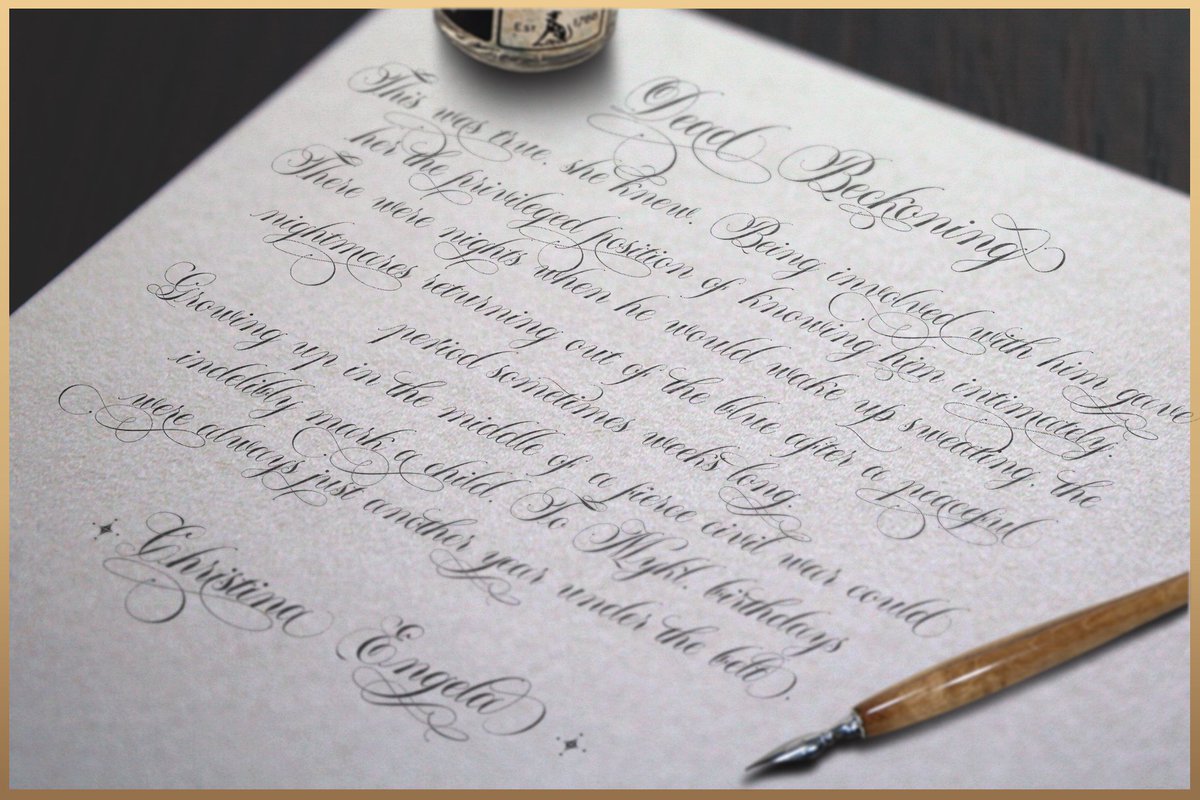 EST
Dead Beckoning
This was true, she knew. Being involved with him gave
her the privileged position of knowing him intimately.
There were nights when he would wake up sweating, the
nightmares returning out of the blue after a peaceful
period sometimes weeks long.
Growing up in the middle of a fierce civil war could
indelibly mark a child. To Mykl, birthdays
were always just another year under the belt.
Christina Engela